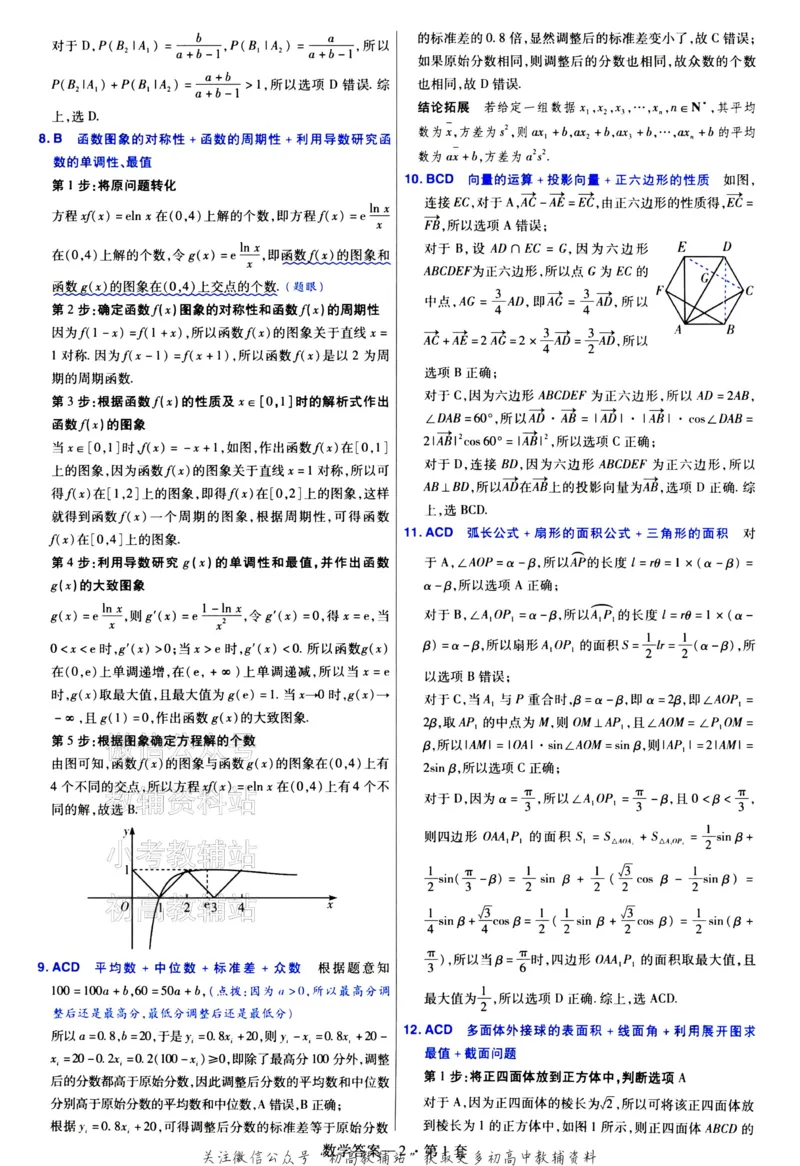 对于 D,P(B₂|A₁) = b/(a+b-1),P(B₁|A₂) = a/(a+b-1),所以
P(B₂|A₁)+P(B₁|A₂) = (a+b)/(a+b-1) >1,所以选项 D 错误. 综
上,选 D.
8. B 函数图象的对称性 + 函数的周期性 + 利用导数研究函
数的单调性、最值
第 1 步:将原问题转化
方程 xf(x) = eln x 在(0,4)上解的个数,即方程 f(x) = e ln x/x
在(0,4)上解的个数,令 g(x) = e ln x/x,即函数 f(x)的图象和
函数 g(x)的图象在(0,4)上交点的个数. (题眼)
第 2 步:确定函数 f(x)图象的对称性和函数 f(x)的周期性
因为 f(1-x)=f(1+x),所以函数 f(x)的图象关于直线 x=
1 对称. 因为 f(x-1)=f(x+1),所以函数 f(x)是以 2 为周
期的周期函数.
第 3 步:根据函数 f(x)的性质及 x∈[0,1]时的解析式作出
函数 f(x)的图象
当 x∈[0,1]时,f(x) = -x+1,如图,作出函数 f(x)在[0,1]
上的图象,因为函数 f(x)的图象关于直线 x=1 对称,所以可
得 f(x)在[1,2]上的图象,即得 f(x)在[0,2]上的图象,这样
就得到函数 f(x)一个周期的图象,根据周期性,可得函数
f(x)在[0,4]上的图象.
第 4 步:利用导数研究 g(x)的单调性和最值,并作出函数
g(x)的大致图象
g(x)=e ln x/x,则 g′(x)=e (1-ln x)/x²,令 g′(x)=0,得 x=e,当
0<x<e 时,g′(x)>0;当 x>e 时,g′(x)<0. 所以函数g(x)
在(0,e)上单调递增,在(e,+∞)上单调递减,所以当 x=e
时,g(x)取最大值,且最大值为 g(e)=1. 当 x→0 时,g(x)→
-∞,且 g(1)=0,作出函数 g(x)的大致图象.
第 5 步:根据图象确定方程解的个数
由图可知,函数 f(x)的图象与函数 g(x)的图象在(0,4)上有
4 个不同的交点,所以方程 xf(x)=eln x 在(0,4)上有 4 个不
同的解,故选 B.
微信公众号
教辅资料站
小考教辅站
初高教辅站
y
1
O 1 2 e 3 4 x
9. ACD 平均数 + 中位数 + 标准差 + 众数 根据题意知
100=100a+b,60=50a+b,(点拨:因为 a>0,所以最高分调
整后还是最高分,最低分调整后还是最低分)
所以 a=0.8,b=20,于是 yᵢ=0.8xᵢ+20,则 yᵢ-xᵢ=0.8xᵢ+20-
xᵢ=20-0.2xᵢ=0.2(100-xᵢ)≥0,即除了最高分 100 分外,调整
后的分数都高于原始分数,因此调整后分数的平均数和中位数
分别高于原始分数的平均数和中位数,A 错误,B 正确;
根据 yᵢ=0.8xᵢ+20,可得调整后分数的标准差等于原始分数
的标准差的 0.8 倍,显然调整后的标准差变小了,故 C 错误;
如果原始分数相同,则调整后的分数也相同,故众数的个数
也相同,故 D 错误.
结论拓展 若给定一组数据 x₁,x₂,x₃,⋯,xₙ,n∈N*,其平均
数为 x̄,方差为 s²,则 ax₁+b,ax₂+b,ax₃+b,⋯,axₙ+b 的平均
数为 ax̄+b,方差为 a²s².
10. BCD 向量的运算 + 投影向量 + 正六边形的性质 如图,
连接 EC,对于 A,AC→-AE→=EC→,由正六边形的性质得,EC→=
FB→,所以选项 A 错误;
对于 B,设 AD∩EC=G,因为六边形
ABCDEF为正六边形,所以点 G 为 EC 的
中点,AG=3/4 AD,即AG→=3/4 AD→,所以
AC→+AE→=2AG→=2×3/4 AD→=3/2 AD→,所以
选项 B 正确;
E D
G
F C
A B
对于 C,因为六边形 ABCDEF 为正六边形,所以 AD=2AB,
∠DAB=60°,所以AD→·AB→=|AD→|·|AB→|·cos∠DAB=
2|AB→|²cos 60°=|AB→|²,所以选项 C 正确;
对于 D,连接 BD,因为六边形 ABCDEF 为正六边形,所以
AB⊥BD,所以AD→在AB→上的投影向量为AB→,选项 D 正确. 综
上,选 BCD.
11. ACD 弧长公式 + 扇形的面积公式 + 三角形的面积 对
于 A,∠AOP=α-β,所以A͡P的长度 l=rθ=1×(α-β)=
α-β,所以选项 A 正确;
对于 B,∠A₁OP₁=α-β,所以A₁͡P₁的长度 l=rθ=1×(α-
β)=α-β,所以扇形 A₁OP₁ 的面积 S=1/2 lr=1/2(α-β),所
以选项 B 错误;
对于 C,当 A₁ 与 P 重合时,β=α-β,即 α=2β,即∠AOP₁=
2β,取 AP₁ 的中点为 M,则 OM⊥AP₁,且∠AOM=∠P₁OM=
β,所以|AM|=|OA|·sin∠AOM=sin β,则|AP₁|=2|AM|=
2sin β,所以选项 C 正确;
对于 D,因为 α=π/3,所以∠A₁OP₁=π/3-β,且 0<β<π/3,
则四边形 OAA₁P₁ 的面积 S₁=S△AOA₁+S△A₁OP₁=1/2 sin β+
1/2 sin(π/3-β)=1/2 sin β+1/2(√3/2 cos β-1/2 sin β)=
1/4 sin β+√3/4 cos β=1/2(1/2 sin β+√3/2 cos β)=1/2 sin(β+
π/3),所以当β=π/6时,四边形 OAA₁P₁ 的面积取最大值,且
最大值为1/2,所以选项 D 正确. 综上,选 ACD.
12. ACD 多面体外接球的表面积 + 线面角 + 利用展开图求
最值 + 截面问题
第 1 步:将正四面体放到正方体中,判断选项 A
对于 A,因为正四面体的棱长为√2,所以可将该正四面体放
到棱长为 1 的正方体中,如图 1 所示,则正四面体 ABCD 的
数学答案—2·第 1 套
关注微信公众号 初高教辅站 获取更多初高中教辅资料